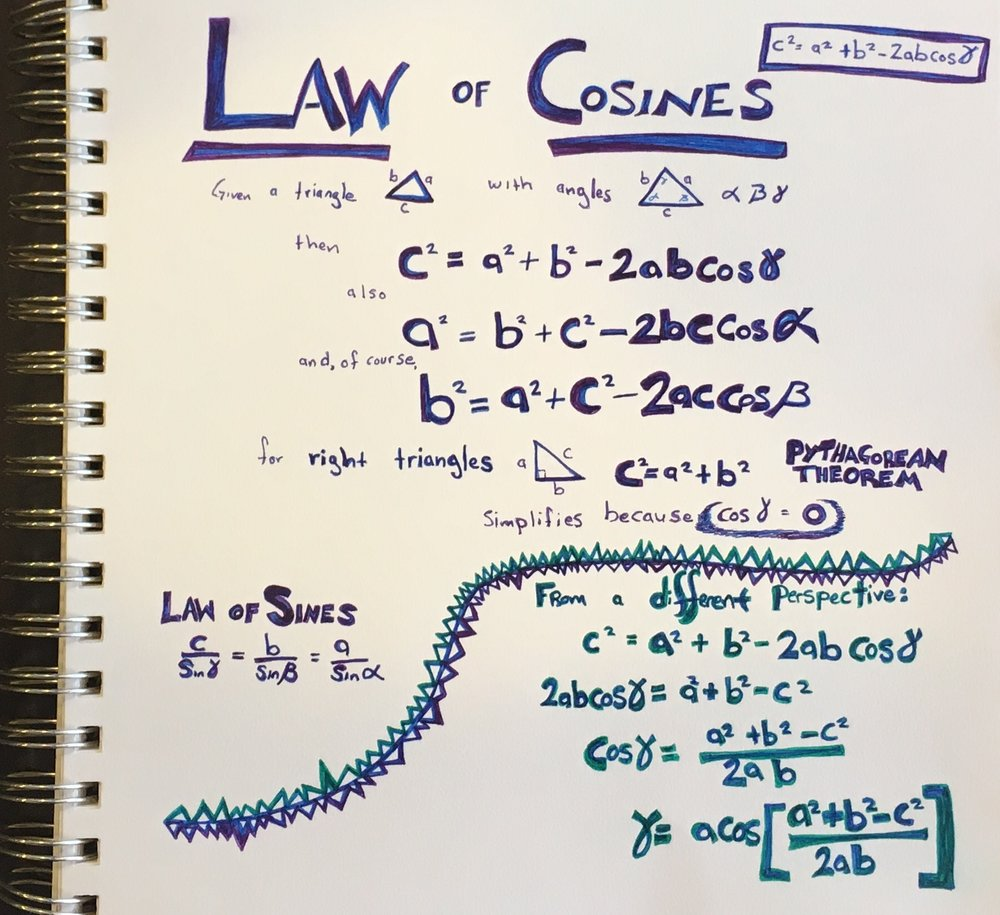 LAW OF COSINES
c² = a² + b² - 2abcosγ
Given a triangle b a c with angles b a c γ α β α β γ
then
c² = a² + b² - 2abcosγ
also
a² = b² + c² - 2bccosα
and, of course,
b² = a² + c² - 2accosβ
for right triangles a c b c² = a² + b² PYTHAGOREAN
THEOREM
Simplifies because cos γ = 0
LAW OF SINES
c/sinγ = b/sinβ = a/sinα
From a different perspective:
c² = a² + b² - 2ab cosγ
2abcosγ = a² + b² - c²
cosγ = a² + b² - c² / 2ab
γ = acos[a² + b² - c² / 2ab]